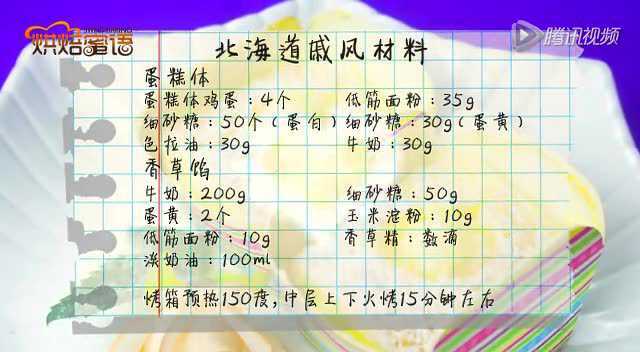 烘焙蜜语
腾讯视频
北海道戚风材料
蛋糕体
蛋糕体鸡蛋：4个 低筋面粉：35g
细砂糖：50个（蛋白）细砂糖：30g（蛋黄）
色拉油：30g 牛奶：30g
香草馅
牛奶：200g 细砂糖：50g
蛋黄：2个 玉米淀粉：10g
低筋面粉：10g 香草精：数滴
淡奶油：100ml
烤箱预热150度，中层上下火烤15分钟左右